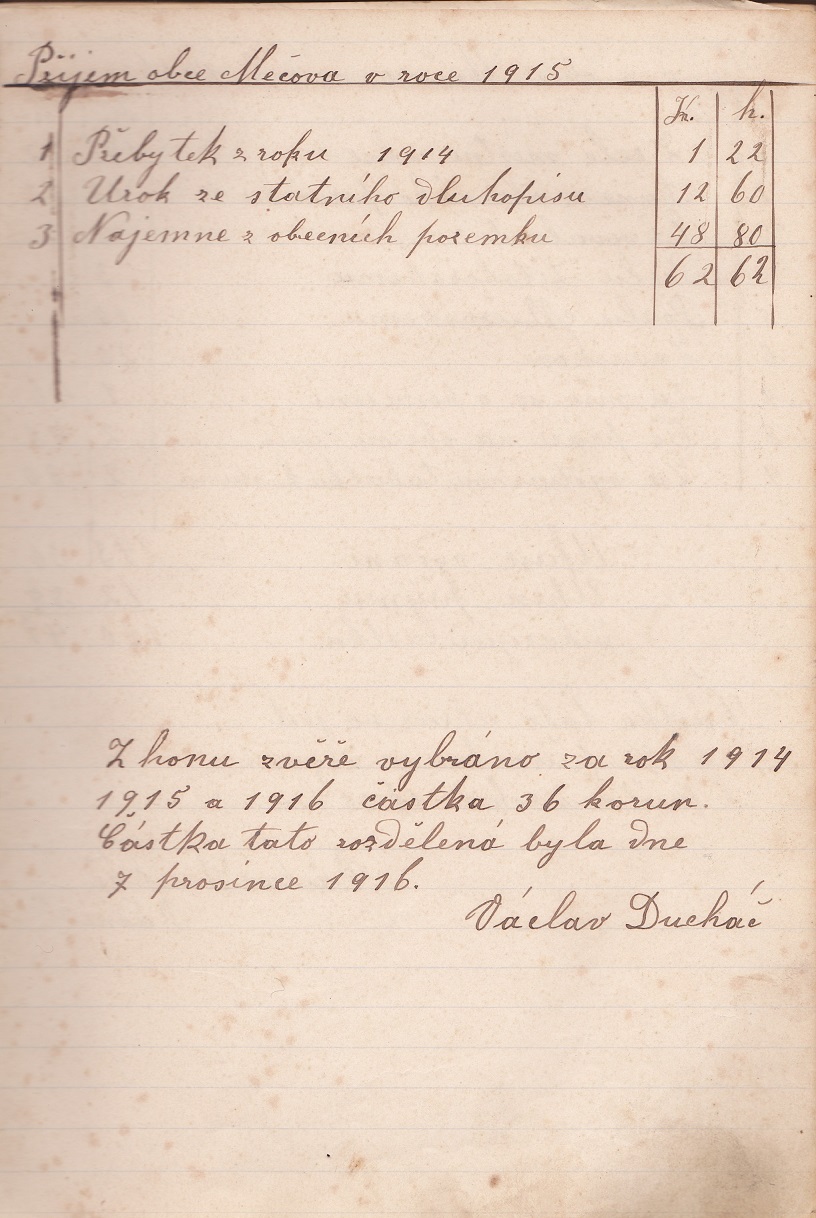 Příjem obce Mečova v roce 1915
K. h.
1 Přebytek z roku 1914 1 22
2 Urok ze statního dluhopisu 12 60
3 Najemne z obecních pozemku 48 80
62 62
Z honu zvěře vybráno za rok 1914
1915 a 1916 částka 36 korun.
Částka tato rozdělená byla dne
7 prosince 1916.
Václav Ducháč